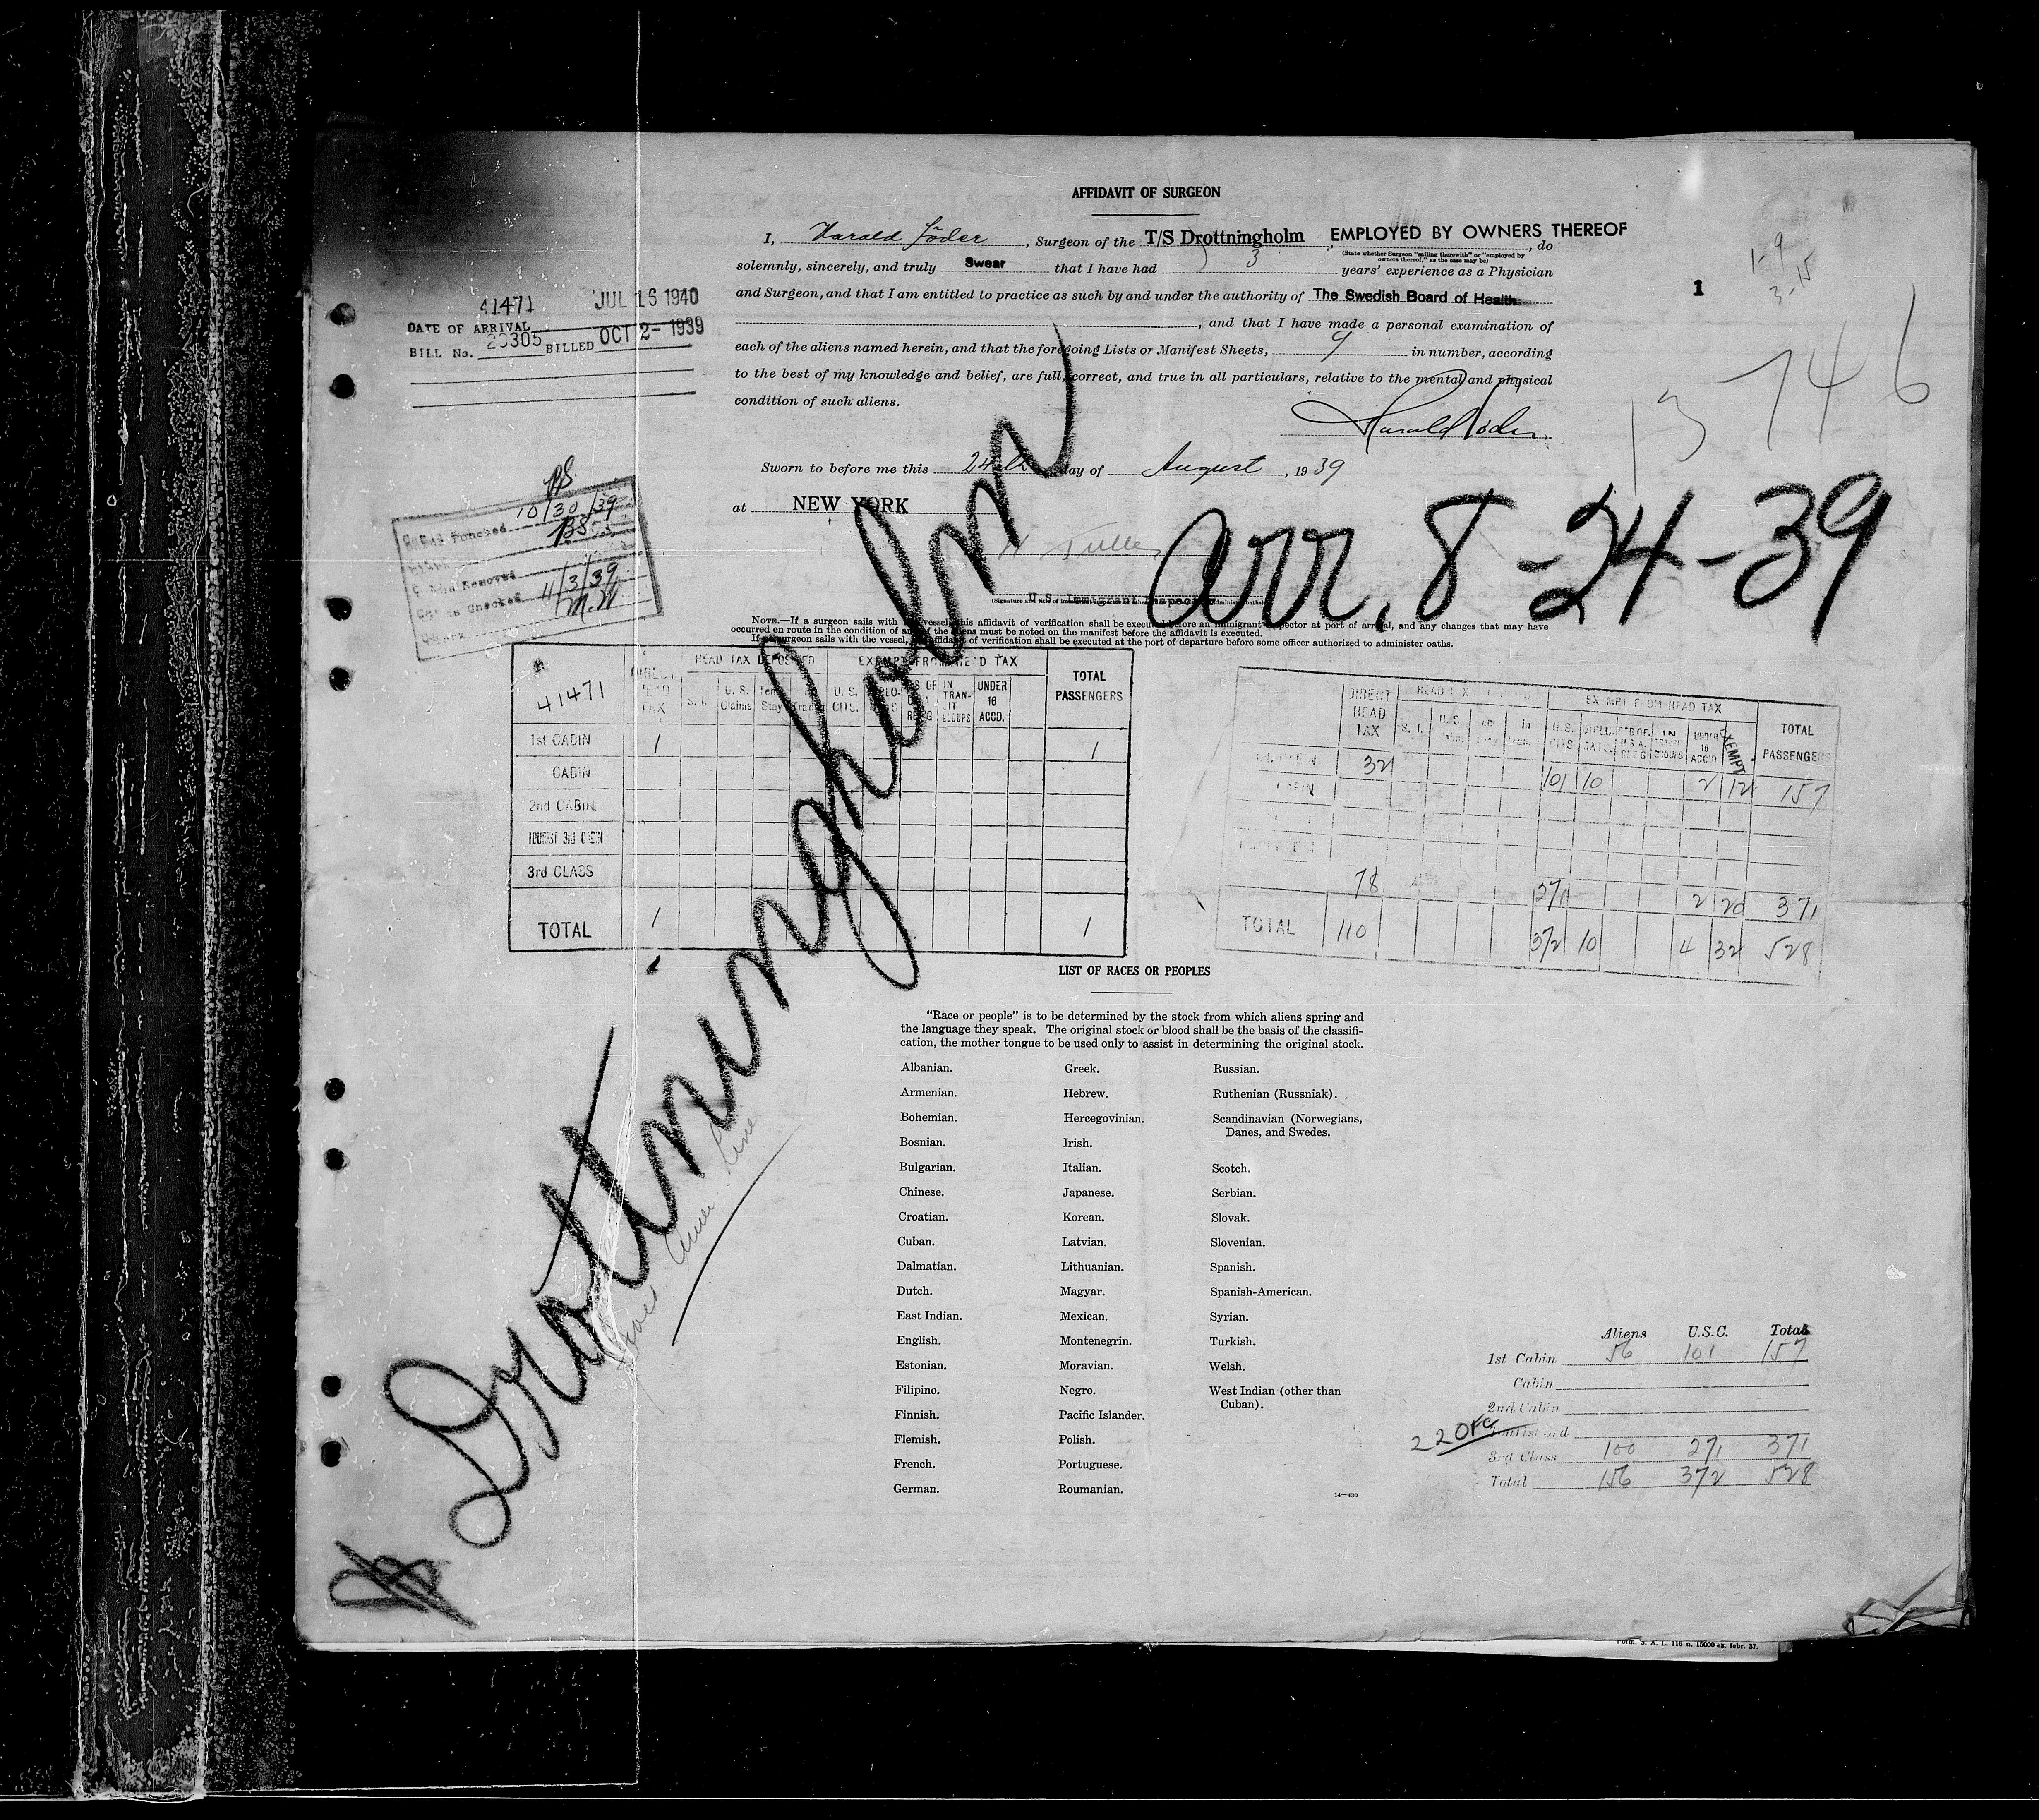 AFFIDAVIT OF SURGEON
I, Harald Söder, Surgeon of the T/S Drottningholm, EMPLOYED BY OWNERS THEREOF, do
(State whether Surgeon "sailing therewith" or "employed by
owners thereof," as the case may be)
solemnly, sincerely, and truly Swear that I have had 3 years' experience as a Physician
and Surgeon, and that I am entitled to practice as such by and under the authority of The Swedish Board of Health
, and that I have made a personal examination of
each of the aliens named herein, and that the foregoing Lists or Manifest Sheets, 9 in number, according
to the best of my knowledge and belief, are full, correct, and true in all particulars, relative to the mental and physical
condition of such aliens.
Harald Söder
Sworn to before me this 24th day of August, 1939
at NEW YORK
U.S. Immigrant Inspector
1
1-9
3-15
13746
41471 JUL 16 1940
DATE OF ARRIVAL
BILL No. 20305 BILLED OCT 2- 1939
10/30/39
BS
11/3/39
M.W
arr. 8-24-39
Drottningholm
NOTE.—If a surgeon sails with the vessel, this affidavit of verification shall be executed before an immigrant inspector at port of arrival, and any changes that may have
occurred en route in the condition of any of the aliens must be noted on the manifest before the affidavit is executed.
If no surgeon sails with the vessel, the affidavit of verification shall be executed at the port of departure before some officer authorized to administer oaths.
41471 DIRECT HEAD TAX HEAD TAX DEPOSITED EXEMPT FROM HEAD TAX TOTAL PASSENGERS
S. I. U. S. Claims Temp Stay U. S. CITS. IN TRANSIT GROUPS UNDER 16 ACCD.
1st CABIN 1 1
CABIN
2nd CABIN
TOURIST 3rd CABIN
3rd CLASS
TOTAL 1 1
DIRECT HEAD TAX EXEMPT FROM HEAD TAX TOTAL PASSENGERS
S. I. U.S. CITS DIPLOMATS UNDER 16 ACCD EXEMPT
32 101 10 2 12 157
78 271 2 20 371
TOTAL 110 372 10 4 32 528
LIST OF RACES OR PEOPLES
"Race or people" is to be determined by the stock from which aliens spring and
the language they speak. The original stock or blood shall be the basis of the classifi-
cation, the mother tongue to be used only to assist in determining the original stock.
Albanian. Greek. Russian.
Armenian. Hebrew. Ruthenian (Russniak).
Bohemian. Hercegovinian. Scandinavian (Norwegians,
Danes, and Swedes.
Bosnian. Irish.
Bulgarian. Italian. Scotch.
Chinese. Japanese. Serbian.
Croatian. Korean. Slovak.
Cuban. Latvian. Slovenian.
Dalmatian. Lithuanian. Spanish.
Dutch. Magyar. Spanish-American.
East Indian. Mexican. Syrian.
English. Montenegrin. Turkish.
Estonian. Moravian. Welsh.
Filipino. Negro. West Indian (other than
Cuban).
Finnish. Pacific Islander.
Flemish. Polish.
French. Portuguese.
German. Roumanian.
14—430
Amer. Line
Aliens U.S.C. Total
1st Cabin 56 101 157
Cabin
2nd Cabin
Tourist 3rd
3rd Class 100 271 371
Total 156 372 528
Form. S. A. L. 116 a. 15000 ex. febr. 37.